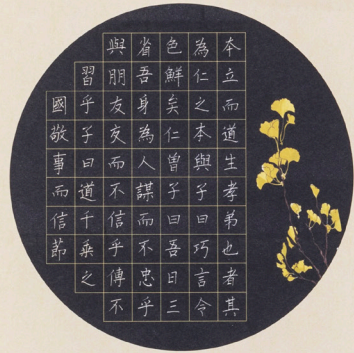 本立而道生孝弟也者其
為仁之本與子曰巧言令
色鮮矣仁曾子曰吾日三
省吾身為人謀而不忠乎
與朋友交而不信乎傳不
習乎子曰道千乘之
國敬事而信節